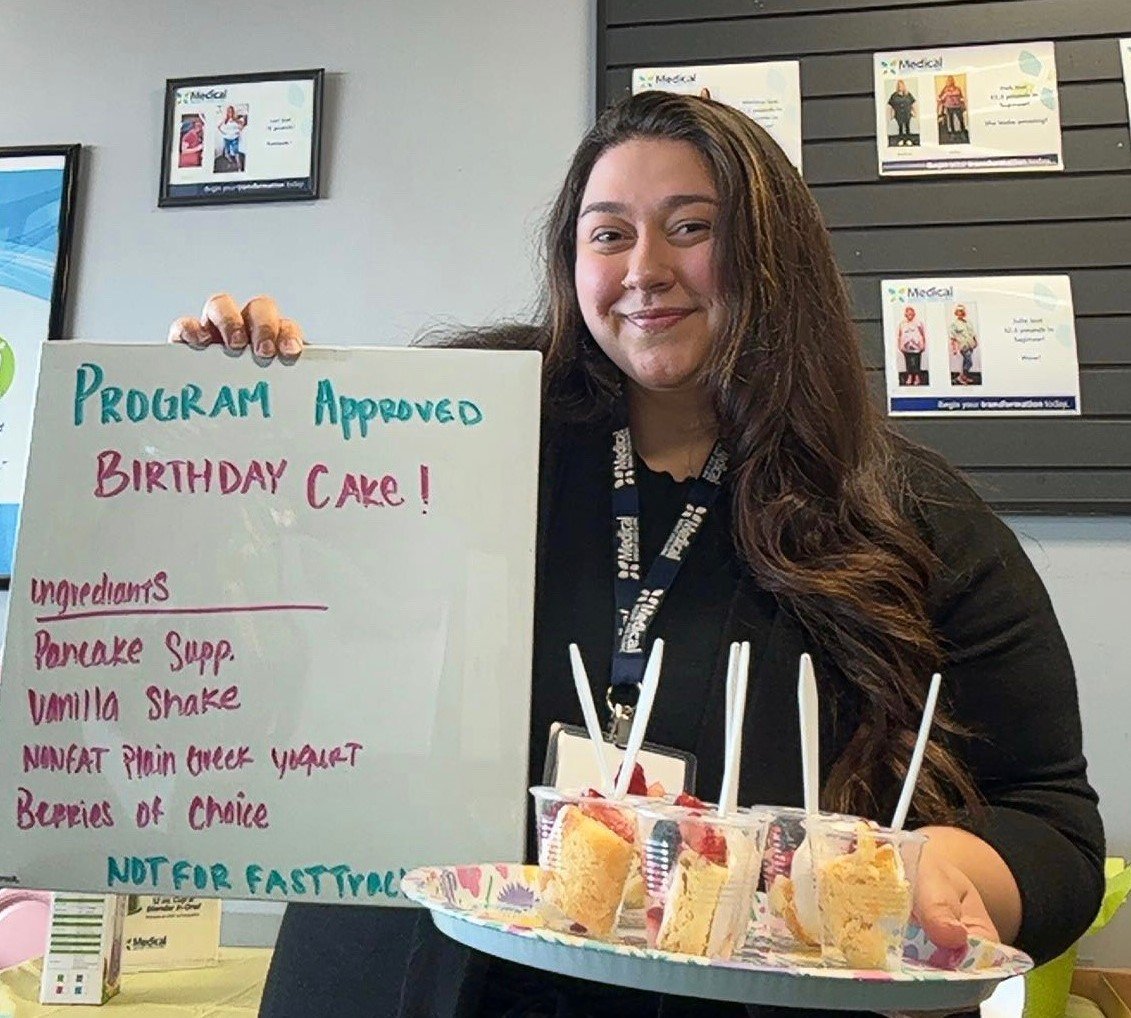 Medical
Begin your transformation today.
Medical
Medical
Begin your transformation today.
Medical
Begin your transformation today.
PROGRAM APPROVED
BIRTHDAY CAKE!
ingrediants
Pancake Supp.
Vanilla Shake
NONFAT Plain Greek yogurt
Berries of Choice
NOT FOR FASTTrac
Medical
Medical
Medical
Medical